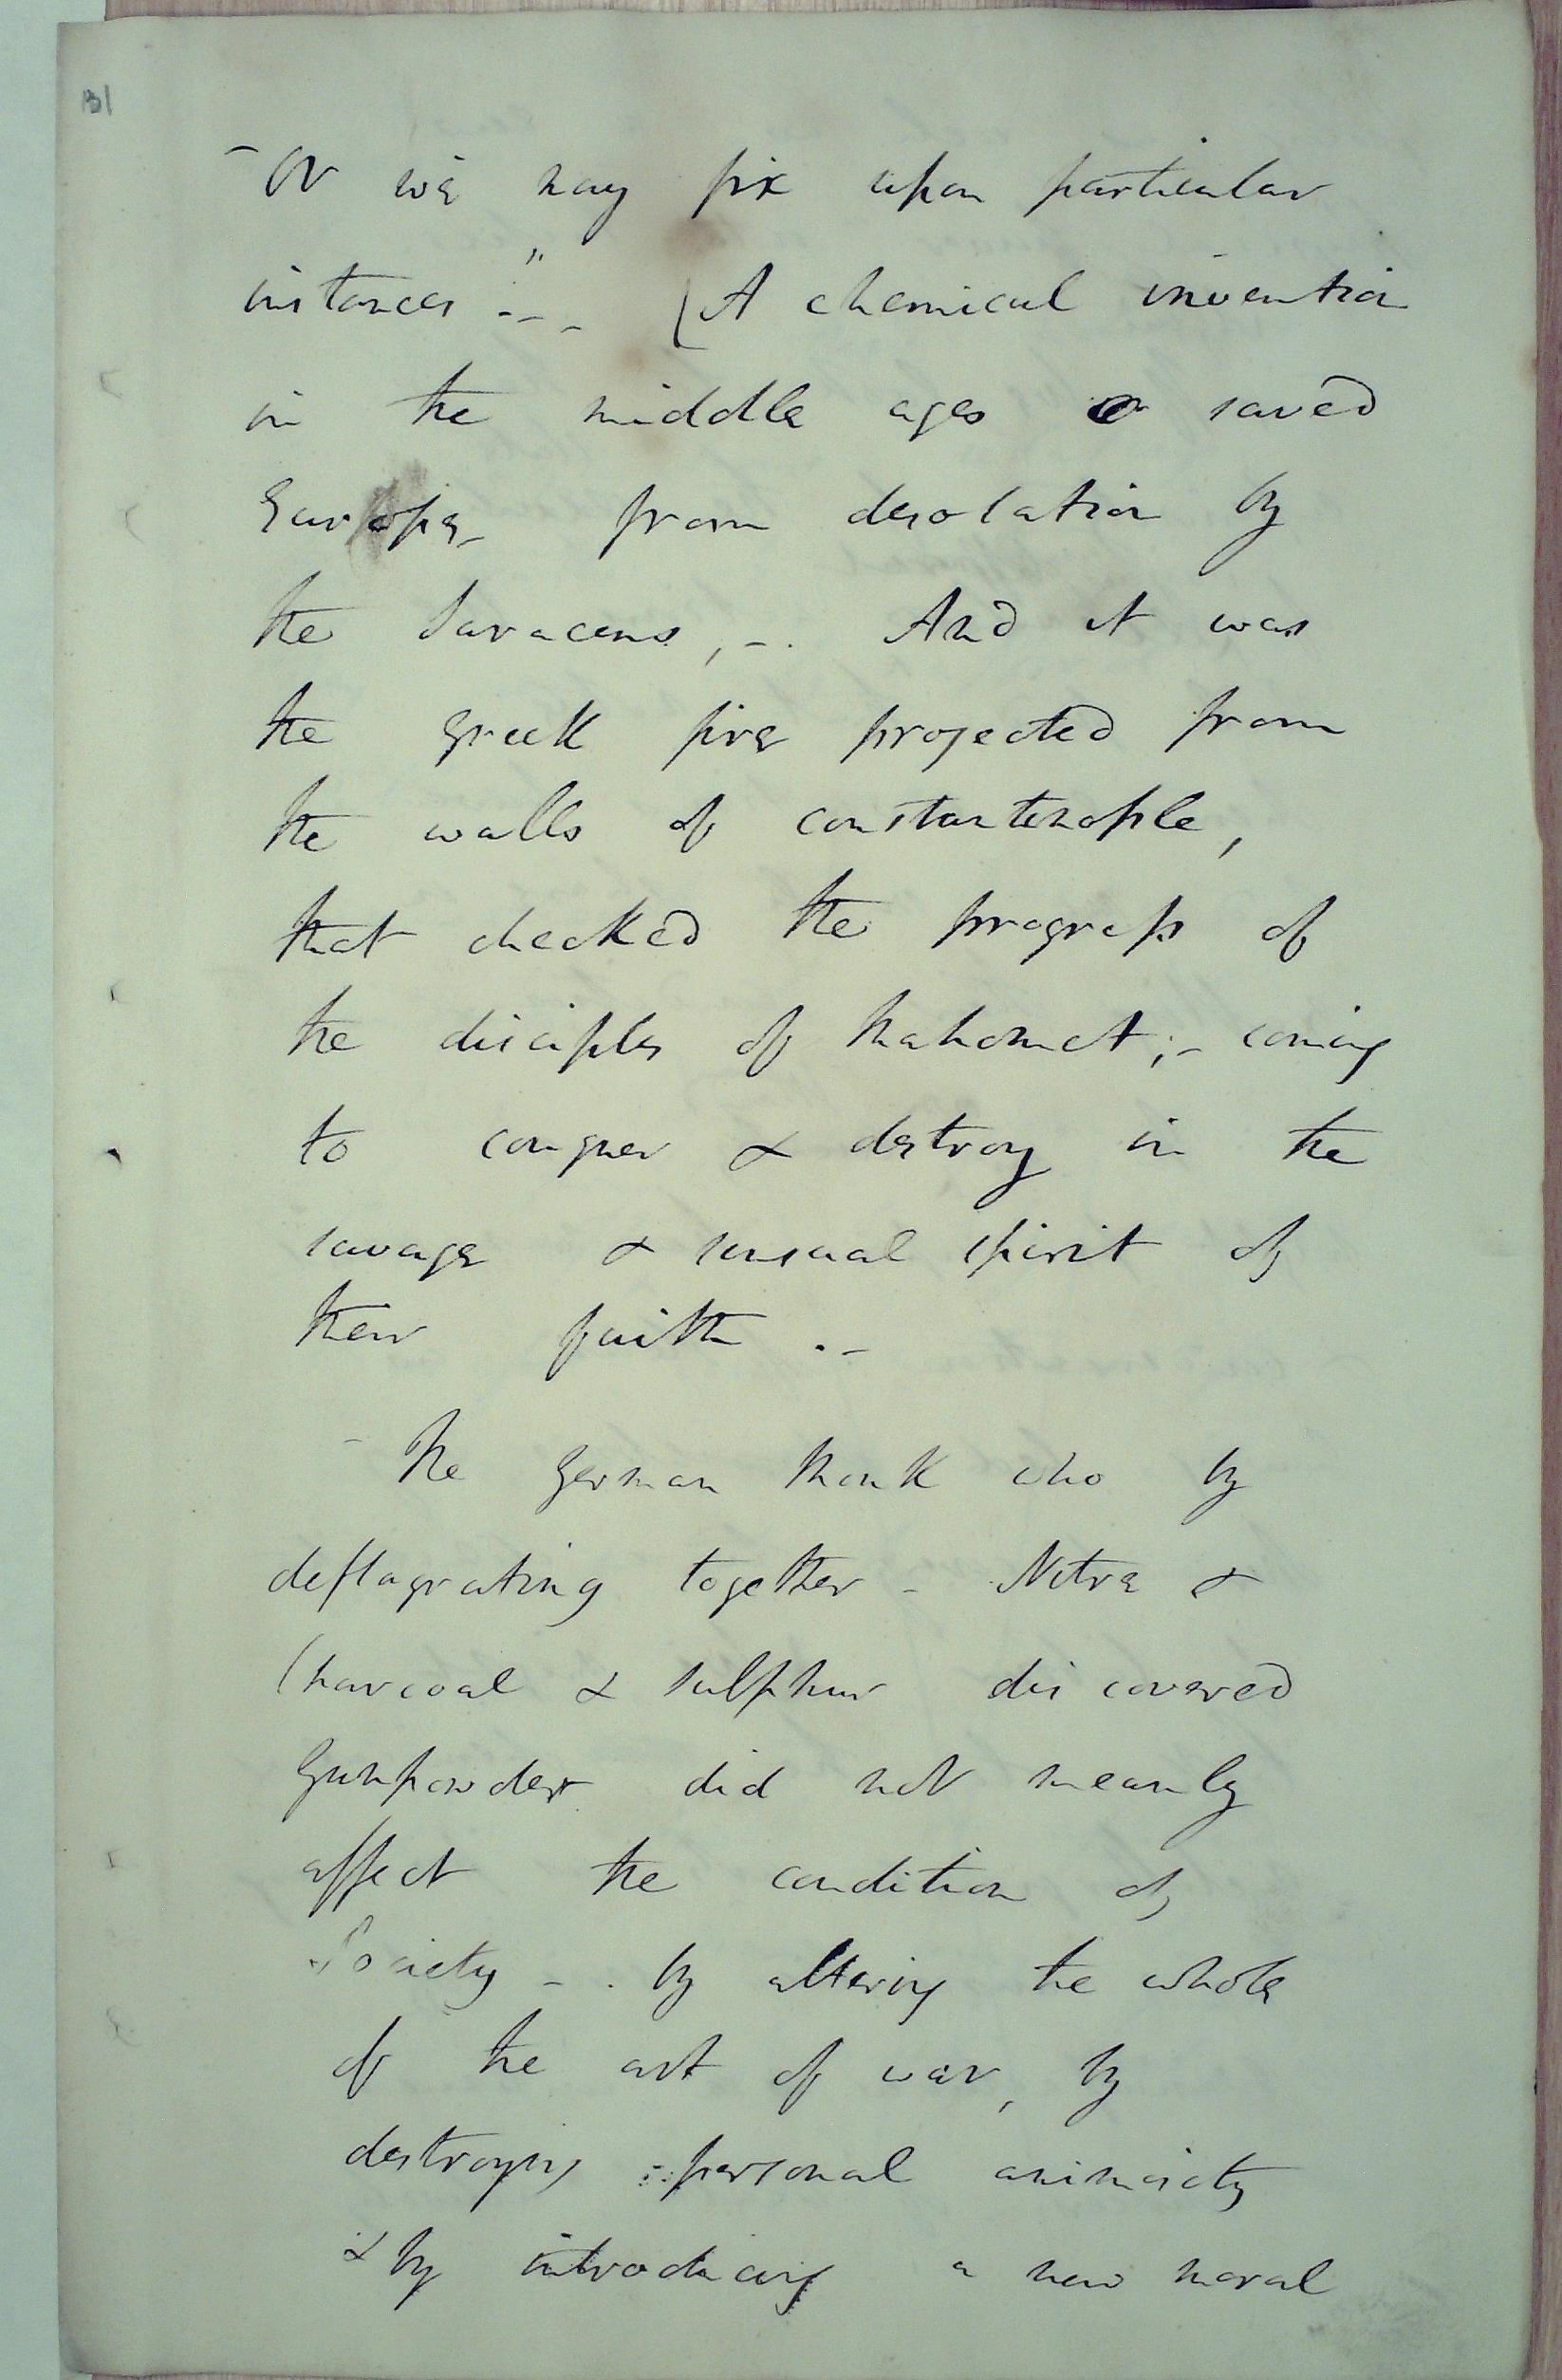 131
- Or we may fix upon particular
instances" - - - (A chemical invention
in the middle ages saved
Europe, from desolation by
the Saracens, -. And it was
the greek fire projected from
the walls of constantenople,
that checked the progress of
the disciples of Mahomet; - coming
to conquer & destroy in the
savage & sensual spirit of
their faith . -
- The German Monk who by
deflagrating together - Nitre &
Charcoal & sulphur discovered
Gunpowder did not meanly
affect the condition of
Society - . by altering the whole
of the art of war, by
destroying personal animosity
& by introducing a new moral